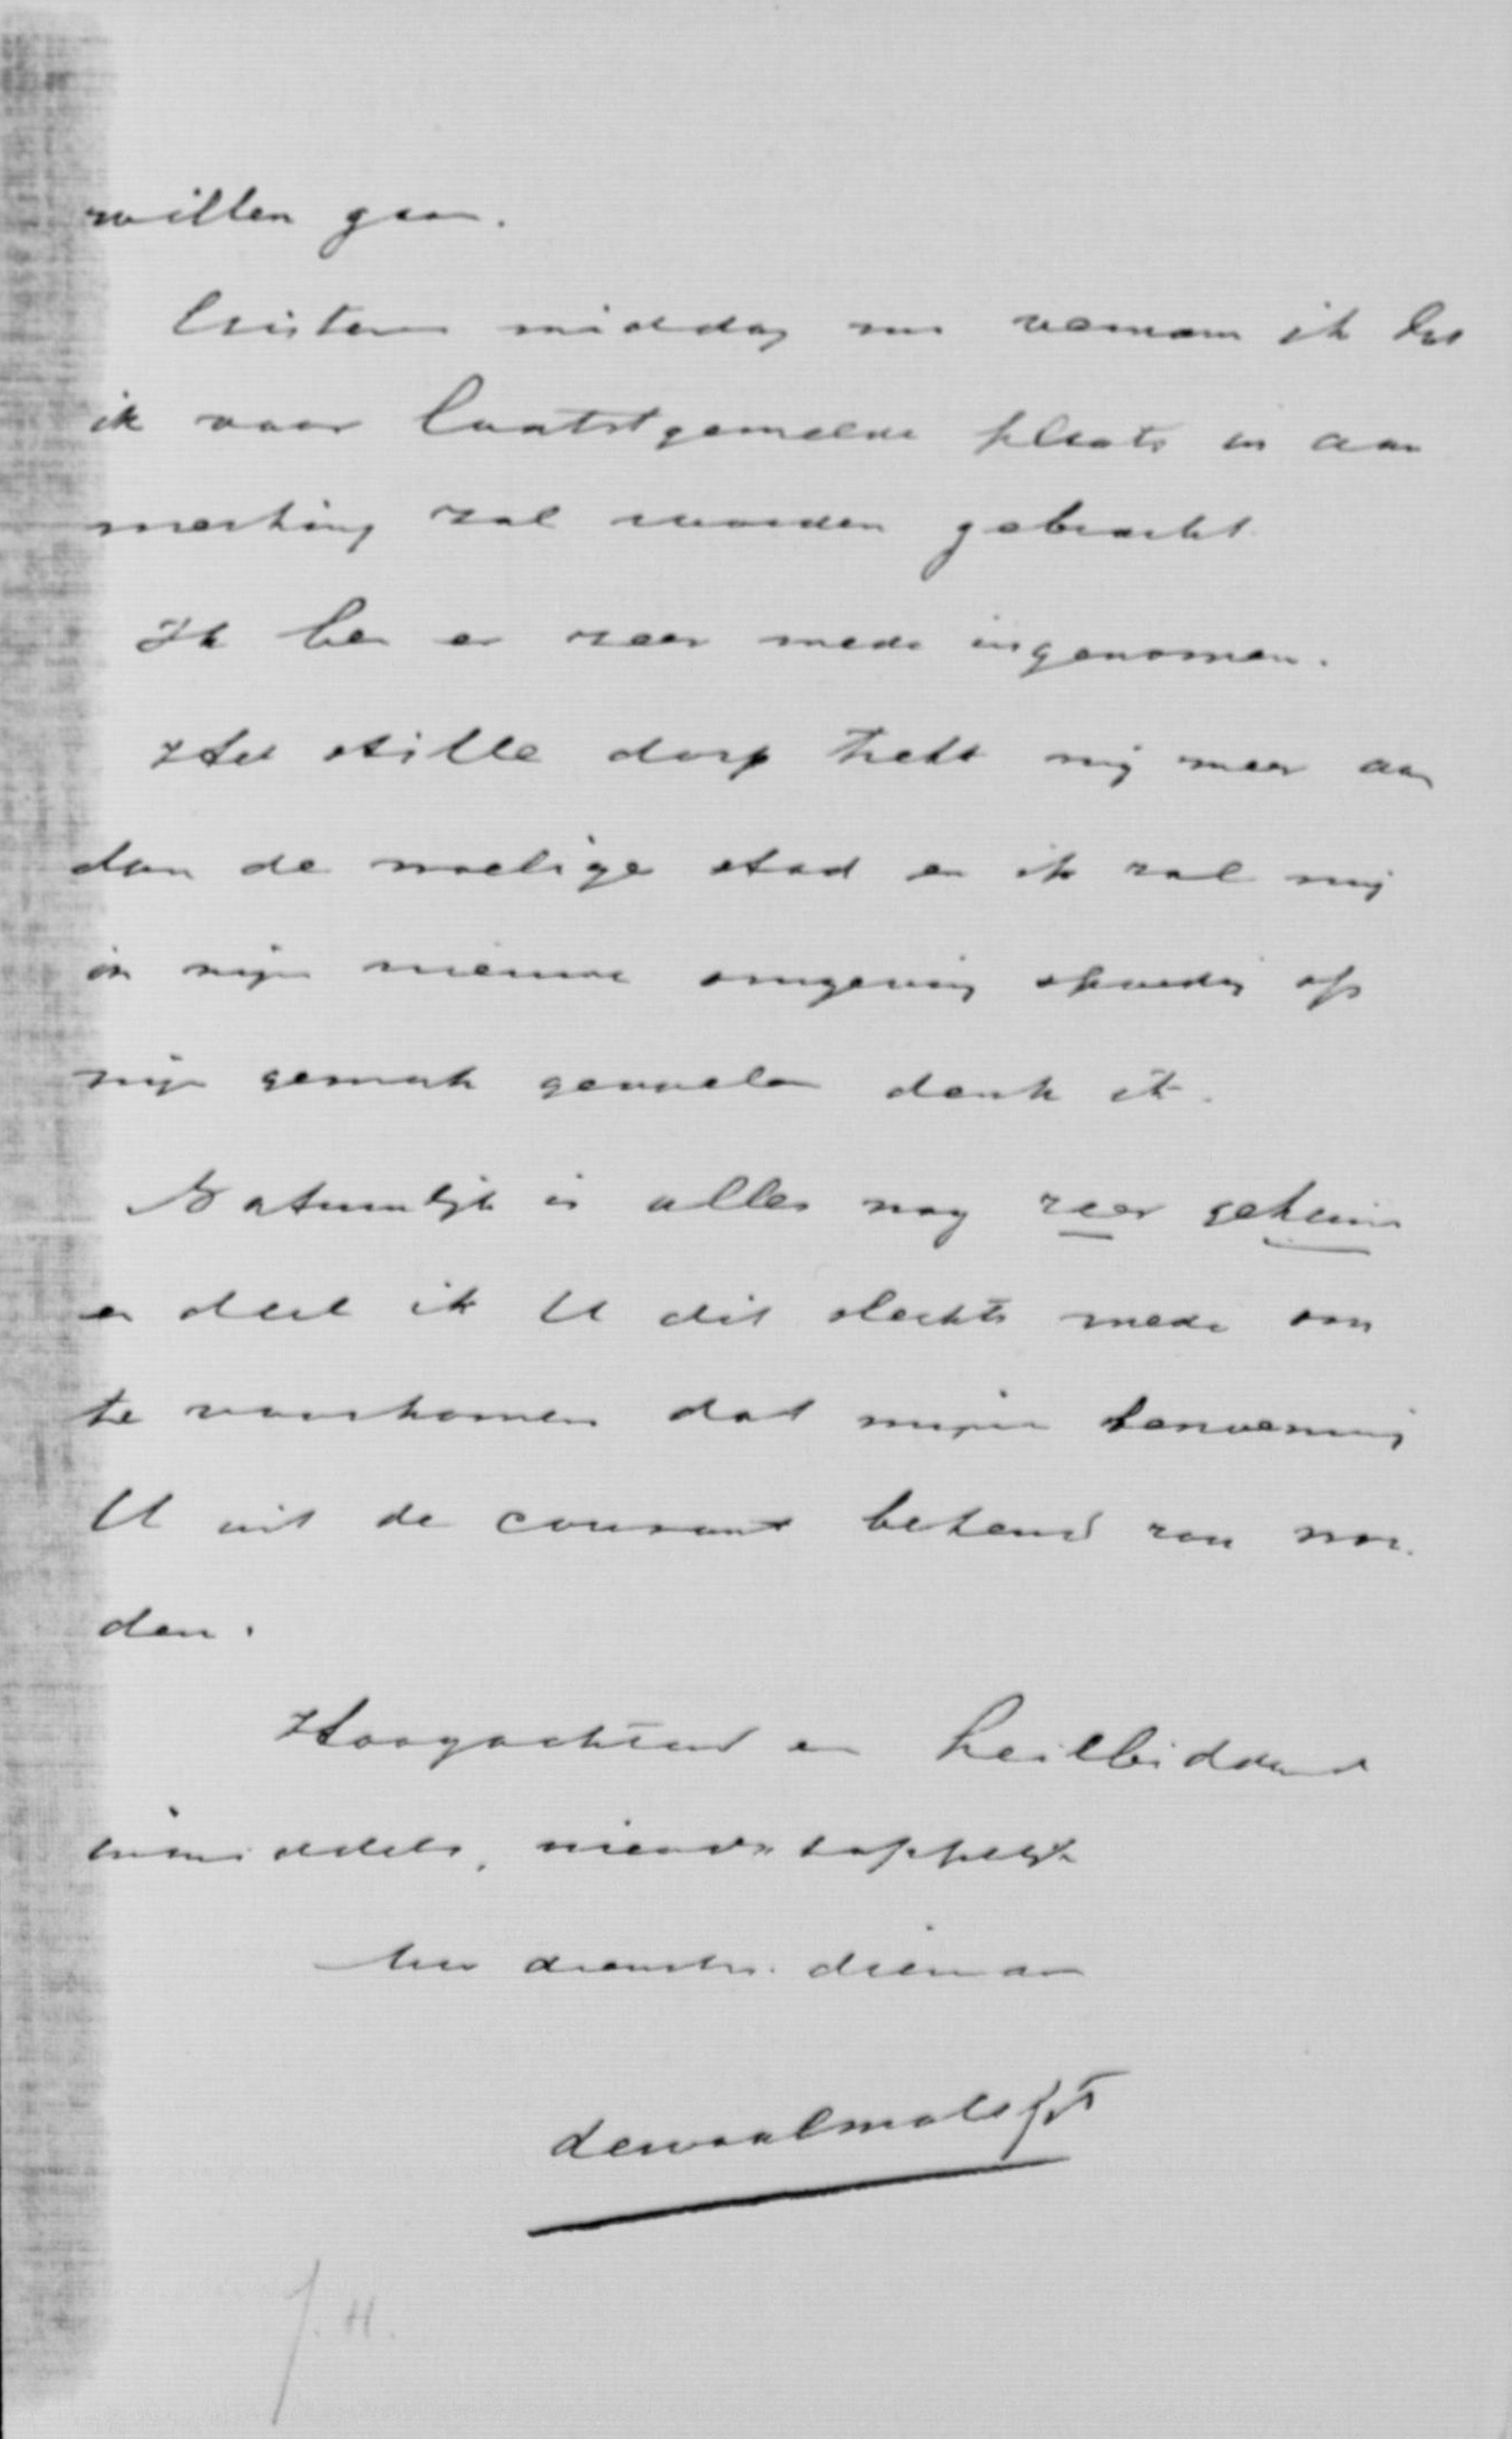 willen gaan.
Gisteren middag nu vernam ik dat
ik voor laatstgemelde plaats in aan
merking zal worden gebracht.
Ik ben er zeer mede ingenomen.
Het stille dorp trekt mij meer aan
dan de woelige stad en ik zal mij
in mijn nieuwe omgeving spoedig op
mijn gemak gevoelen denk ik.
Natuurlijk is alles nog zeer geheim
en deel ik U dit slechts mede om
te voorkomen dat mijne benoeming
U uit de courant bekend zou wor-
den.
Hoogachtend en heilbiddend
inmiddels, vriendschappelijk
Uw dienstw. dienaar
dewaalmalefijt
J. H.